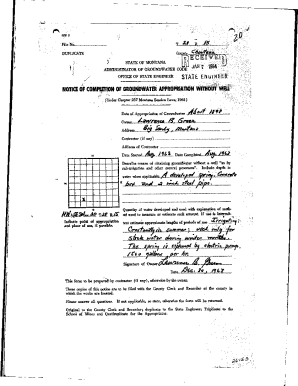 File No.
DUPLICATE
T 20 R 15
County Chouteau
20
RECEIVED
JAN 7 1964
STATE ENGINEER
STATE OF MONTANA
ADMINISTRATOR OF GROUNDWATER CODE
OFFICE OF STATE ENGINEER
NOTICE OF COMPLETION OF GROUNDWATER APPROPRIATION WITHOUT WELL
(Under Chapter 237 Montana Session Laws, 1961)
Date of Appropriation of Groundwater About 1940
Owner Lawrence B. Green
Address Big Sandy, Montana
Contractor (if any)
Address of Contractor
Date Started Aug. 1962 Date Completed Aug. 1962
Describe means of obtaining groundwater without a well "as by
sub-irrigation and other natural processes". Include depth to
water when applicable. A developed spring. Concrete
box and 2 inch steel pipe.
Indicate point of appropriation
and place of use, if possible.
Quantity of water developed and used with explanation of method
used to measure or estimate such amount. If use is intermittent
estimate approximate lengths of periods of use. Irrigating:
Constantly in summer; used only for
stock water during winter months.
The spring is
1500 gallons per hr.
Signature of Owner Lawrence B. Green
Date Dec. 26, 1963
This form to be prepared by contractor (if any), otherwise by the owner.
Three copies of this notice are to be filed with the County Clerk and Recorder of the county in
which the works are located.
Please answer all questions. If not applicable, so state, otherwise the form will be returned.
Original to the County Clerk and Recorder; duplicate to the State Engineer; Triplicate to the
School of Mines and Quadruplicate for the Appropriator.